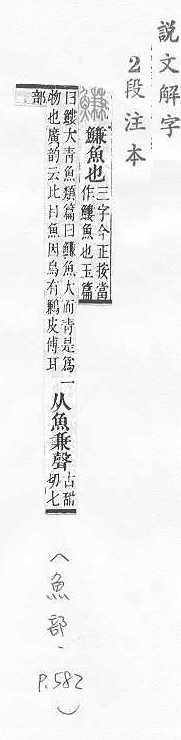 說文解字
2段注本
鰜 鰜魚也 三字今正按當
作鰜魚也玉篇
曰鰜大青魚類篇曰鰜魚大而青是爲一
物也廣韵云比目魚因鳥有鶼皮傅耳
从魚兼聲 古甜
切七
部
(魚部、P.582)